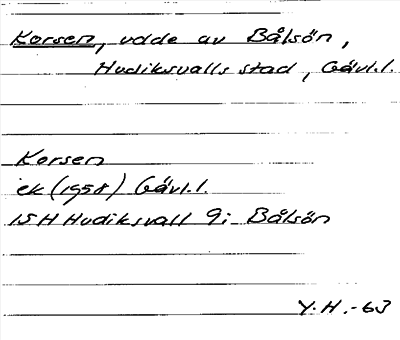 Korsen, udde av Bålsön,
Hudiksvalls stad, Gävl.l.
Korsen
ek (1958) Gävl.l.
15H Hudiksvall 9i Bålsön
Y.H.-63